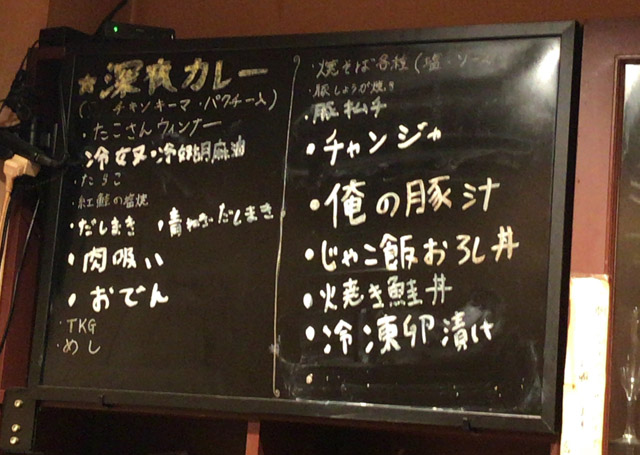 ☆深夜カレー
(チキンキーマ・パクチー入)
・たこさんウィンナー
冷奴・冷奴胡麻油
たらこ
・紅鮭の塩焼
・だしまき ・青ねぎだしまき
・肉吸い
・おでん
・TKG
・めし
・焼そば各種(塩・ソース
・豚しょうが焼き
・豚キムチ
・チャンジャ
・俺の豚汁
・じゃこ飯おろし丼
・焼き鮭丼
・冷凍卵漬け